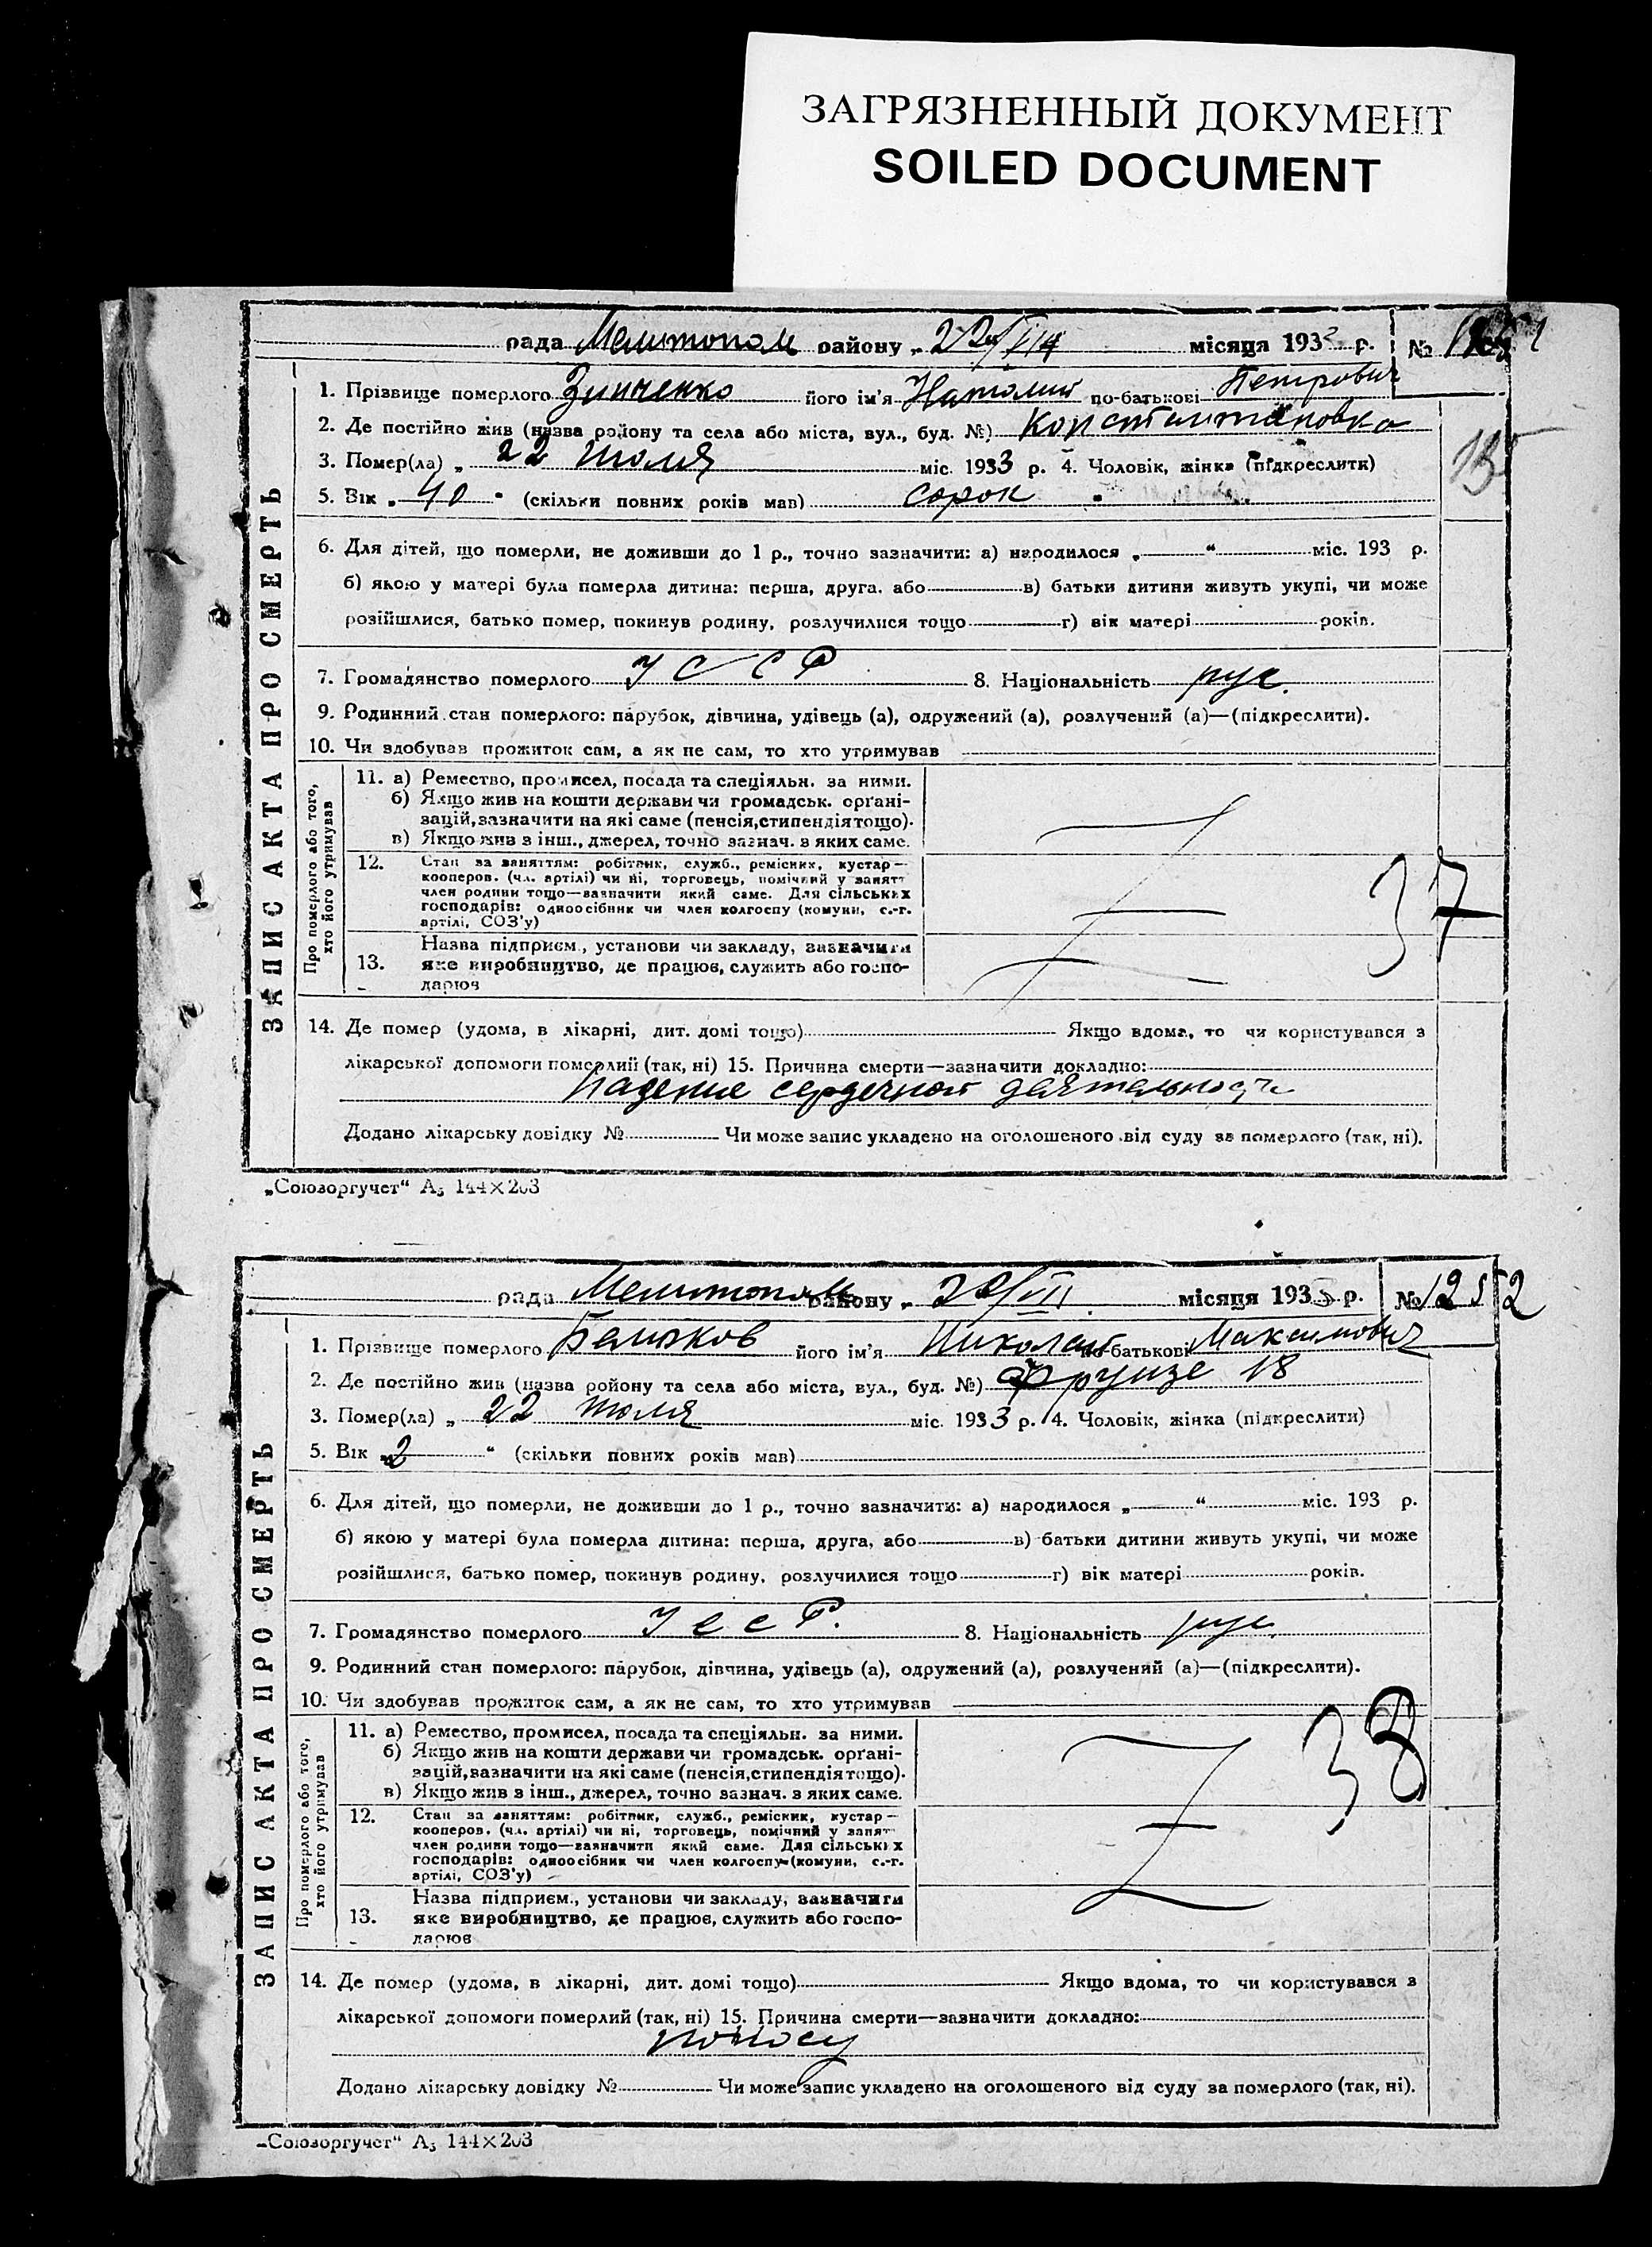 ЗАГРЯЗНЕННЫЙ ДОКУМЕНТ
SOILED DOCUMENT
рада Мелитополь району „ 22/VII місяця 1933 р. №
1. Прізвище померлого Зинченко його ім'я по-батькові Петрович
2. Де постійно жив (назва району та села або міста, вул., буд. №) Константиновка
3. Помер(ла) „ 22 июля міс. 1933 р. 4. Чоловік, жінка (підкреслити)
15
5. Вік „ 40 " (скільки повних років мав) сорок
6. Для дітей, що померли, не доживши до 1 р., точно зазначити: а) народилося „ “ міс. 193 р.
б) якою у матері була померла дитина: перша, друга, або в) батьки дитини живуть укупі, чи може
розійшлися, батько помер, покинув родину, розлучилися тощо г) вік матері років.
7. Громадянство померлого УССР 8. Національність рус.
9. Родинний стан померлого: парубок, дівчина, удівець (а), одружений (а), розлучений (а)—(підкреслити).
10. Чи здобував прожиток сам, а як не сам, то хто утримував
ЗАПИС АКТА ПРО СМЕРТЬ
Про померлого або того, хто його утримував
11. а) Ремество, промисел, посада та спеціяльн. за ними.
б) Якщо жив на кошти держави чи громадськ. орґані-
зацій, зазначити на які саме (пенсія, стипендія тощо).
в) Якщо жив з інш., джерел, точно зазнач. з яких саме.
12. Стан за заняттям: робітник, служб., ремісник, кустар—
кооперов. (чл. артілі) чи ні, торговець, помічний у занятт
член родини тощо—зазначити який саме. Для сільських
господарів: одноосібник чи член колгоспу (комуни, с.-г.
артілі, СОЗ'у)
37
13. Назва підприєм., установи чи закладу, зазначити
яке виробництво, де працює, служить або госпо-
дарює
14. Де помер (удома, в лікарні, дит. домі тощо) Якщо вдома, то чи користувався з
лікарської допомоги померлий (так, ні) 15. Причина смерти—зазначити докладно:
падение сердечной деятельности
Додано лікарську довідку № Чи може запис укладено на оголошеного від суду за померлого (так, ні).
„Союзоргучет“ А₅ 144×203
рада Мелитополь району „ 22/VII місяця 1933 р. № 12552
1. Прізвище померлого його ім'я Николай по-батькові Максимович
2. Де постійно жив (назва району та села або міста, вул., буд. №) Фрунзе 18
3. Помер(ла) „ 22 июля міс. 1933 р. 4. Чоловік, жінка (підкреслити)
5. Вік „ 2 “ (скільки повних років мав)
6. Для дітей, що померли, не доживши до 1 р., точно зазначити: а) народилося „ “ міс. 193 р.
б) якою у матері була померла дитина: перша, друга, або в) батьки дитини живуть укупі, чи може
розійшлися, батько помер, покинув родину, розлучилися тощо г) вік матері років.
7. Громадянство померлого УССР. 8. Національність рус.
9. Родинний стан померлого: парубок, дівчина, удівець (а), одружений (а), розлучений (а)—(підкреслити).
10. Чи здобував прожиток сам, а як не сам, то хто утримував
ЗАПИС АКТА ПРО СМЕРТЬ
Про померлого або того, хто його утримував
11. а) Ремество, промисел, посада та спеціяльн. за ними.
б) Якщо жив на кошти держави чи громадськ. орґані-
зацій, зазначити на які саме (пенсія, стипендія тощо).
в) Якщо жив з інш., джерел, точно зазнач. з яких саме.
38
12. Стан за заняттям: робітник, служб., ремісник, кустар—
кооперов. (чл. артілі) чи ні, торговець, помічний у занят
член родини тощо—зазначити який саме. Для сільських
господарів: одноосібник чи член колгоспу (комуни, с.-г.
артілі, СОЗ'у)
13. Назва підприєм., установи чи закладу, зазначити
яке виробництво, де працює, служить або госпо-
дарює
14. Де помер (удома, в лікарні, дит. домі тощо) Якщо вдома, то чи користувався з
лікарської допомоги померлий (так, ні) 15. Причина смерти—зазначити докладно:
Додано лікарську довідку № Чи може запис укладено на оголошеного від суду за померлого (так, ні).
„Союзоргучет“ А₅ 144×203